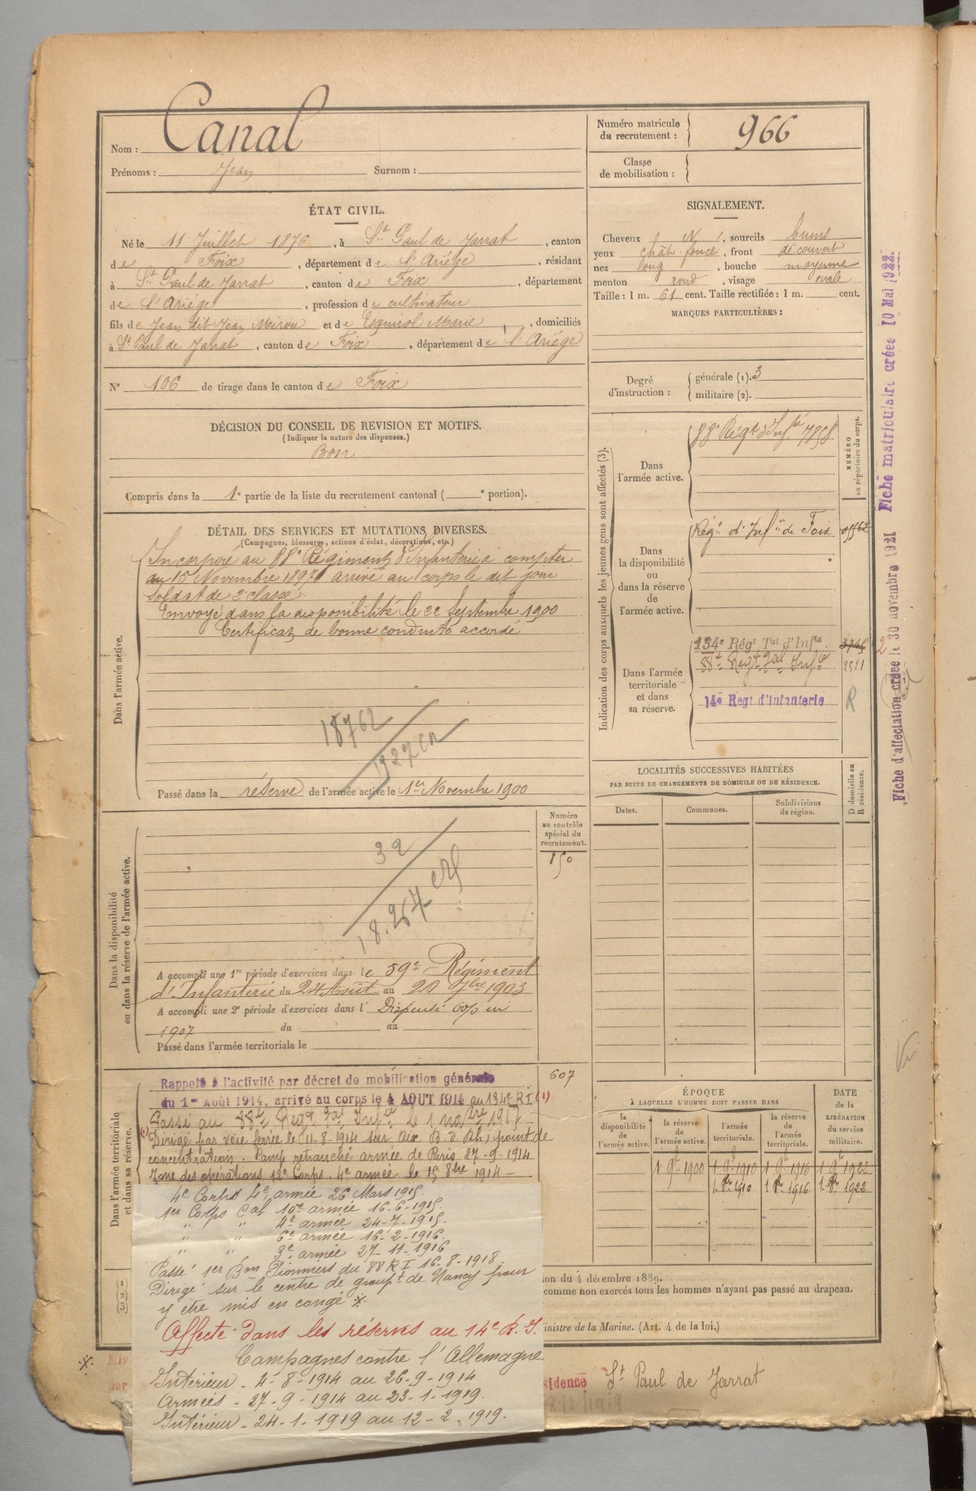 Nom : Canal
Prénoms : Jean Surnom :
ÉTAT CIVIL.
Né le 11 Juillet 1876, à St Paul de Jarrat, canton
de Foix, département de l'Ariège, résidant
à St Paul de Jarrat, canton de Foix, département
de l'Ariège, profession de cultivateur
fils de Jean dit Jean Meirou et de Esquirol Marie, domiciliés
à St Paul de Jarrat, canton de Foix, département de l'Ariège
N° 106 de tirage dans le canton de Foix
DÉCISION DU CONSEIL DE REVISION ET MOTIFS.
(Indiquer la nature des dispenses.)
Bon
Compris dans la 1e partie de la liste du recrutement cantonal ( e portion).
DÉTAIL DES SERVICES ET MUTATIONS DIVERSES.
(Campagnes, blessures, actions d'éclat, décorations, etc.)
Dans l'armée active.
Incorporé au 88e Régiment d'infanterie à compter
du 15 Novembre 1897 arrivé au corps le dit jour
soldat de 2e classe.
Envoyé dans la disponibilité le 22 Septembre 1900
Certificat de bonne conduite accordé
18762
Passé dans la réserve de l'armée active le 1er Novembre 1900
Dans la disponibilité
ou dans la réserve de l'armée active.
Numéro
au contrôle
spécial du
recrutement.
850
32
18.264
A accompli une 1re période d'exercices dans le 59e Régiment
d'Infanterie du 24 Août au 20 7bre 1903
A accompli une 2e période d'exercices dans l' Dispensé en
1907 du au
Passé dans l'armée territoriale le
Dans l'armée territoriale
et dans sa réserve.
607
Rappelé à l'activité par décret de mobilisation générale
du 1er Août 1914, arrivé au corps le 4 AOUT 1914 au 134e RI (1)
Passé au 88e Regt Tal Infie le 1 nobre 1915
(1) Dirigé par voie ferrée le 11-8-1914 sur Aix B.d.Rh, point de
concentration. Camp retranché armée de Paris 27-9-1914
Zone des opérations 12e Corps, 4e armée le 15 8bre 1914
4e Corps 4e armée 26 Mars 1915
1er Corps Cal 10e armée 16-6-1915
" " 4e armée 24-7-1915
" " 6e armée 16-2-1916
" " 3e armée 27-11-1916
Passé 1er Bon Pionniers du 88 RI 16-8-1918
Dirigé sur le centre de groupt de Nancy pour
y être mis en congé ※
Affecté dans les réserves au 14e R.I.
Campagnes contre l'Allemagne
Intérieur - 4-8-1914 au 26-9-1914
Armées - 27-9-1914 au 23-1-1919.
Intérieur - 24-1-1919 au 12-2-1919.
Numéro matricule
du recrutement : 966
Classe
de mobilisation :
SIGNALEMENT.
Cheveux N, sourcils bruns
yeux chât. foncé, front découvert
nez long, bouche moyenne
menton rond, visage ovale
Taille : 1 m. 61 cent. Taille rectifiée : 1 m. cent.
MARQUES PARTICULIÈRES :
Degré
d'instruction :
générale (1). 3
militaire (2).
Indication des corps auxquels les jeunes gens sont affectés (3).
NUMÉRO
au répertoire du corps.
Dans
l'armée active.
88e Régt d'Infie 7858
Dans
la disponibilité
ou
dans la réserve
de
l'armée active.
Régt d'Infie de Foix
Dans l'armée
territoriale
et dans
sa réserve.
134e Régt Tal d'Infie 3745
88e Regt Tal Infie 2521
14e Régt d'Infanterie R
LOCALITÉS SUCCESSIVES HABITÉES
PAR SUITE DE CHANGEMENTS DE DOMICILE OU DE RÉSIDENCE.
Dates. Communes. Subdivisions
de région.
D domicile ou
R résidence.
ÉPOQUE
À LAQUELLE L'HOMME DOIT PASSER DANS
DATE
de la
LIBÉRATION
du service
militaire.
la
disponibilité
de
l'armée active.
la réserve
de
l'armée active.
l'armée
territoriale.
la réserve
de
l'armée
territoriale.
1 9bre 1900 1 9bre 1910 1 9bre 1916 1 9bre 1922
1 8bre 1910 1 8bre 1916 1 8bre 1922
on du 4 décembre 1889.
comme non exercés tous les hommes n'ayant pas passé au drapeau.
inistre de la Marine. (Art. 4 de la loi.)
sidence St Paul de Jarrat
Fiche d'affectation créée le 30 novembre 1921 Fiche matriculaire créée 10 Mai 1922.